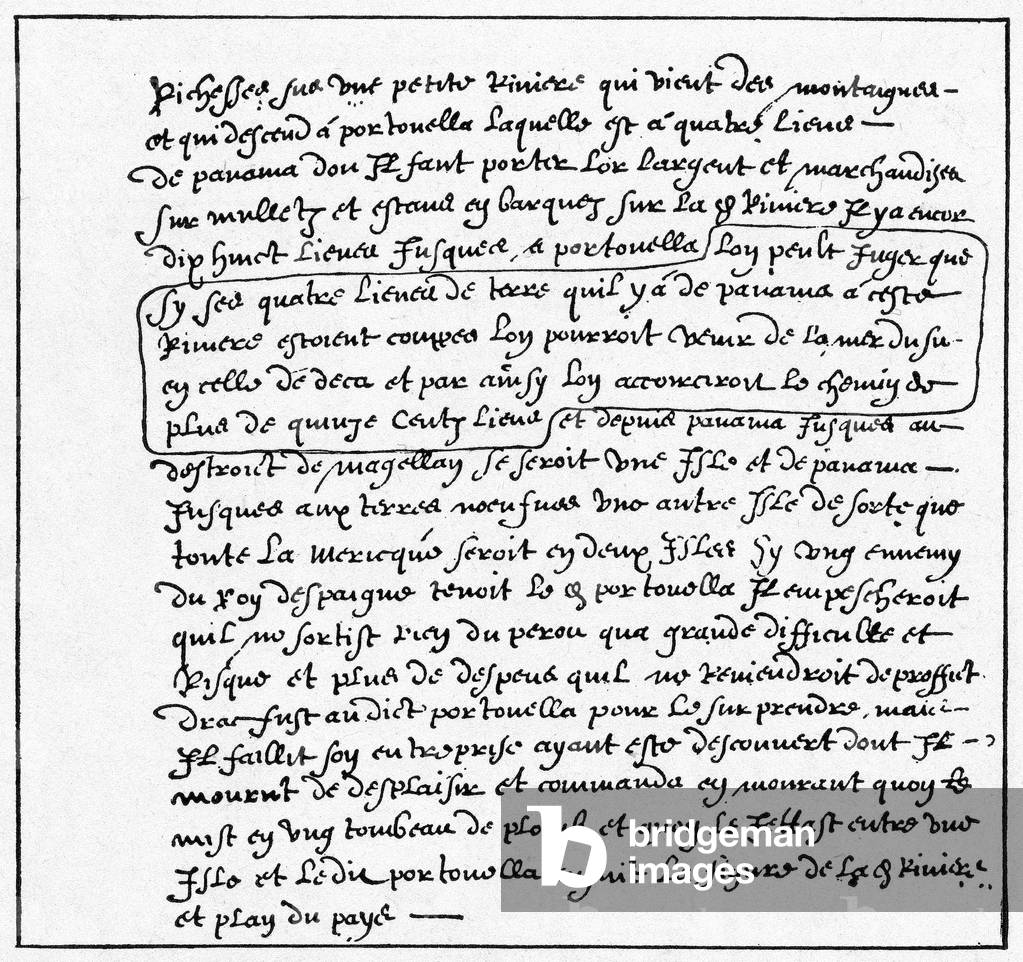 Richesses sur une petite Riviere qui vient des montaignes
et qui descend á portouella laquelle est á quatre Lieues
de panama dou Il fault porter Lor Largent et marchandises
sur mulletz et estans en barques sur La d Riviere Il y a encor
dix huict Lieues Jusques a portouella Lon peult Juger que
sy ses quatre Lieues de terre quil y á de panama á ceste
Riviere estoient couppes Lon pourroit venir de La mer du su
en celle de deca et par ainsy Lon accorciroit Le chemin de
plus de quinze Centz Lieues et depuis panama Jusques au
destroict de magellan se seroit une Isle et de panama
Jusques aux terres noeufues une autre Isle de sorte que
toute La Mericque seroit en deux Isles Sy ung ennemy
du Roy despaigne tenoit Le d portouella Il empescheroit
quil ne sortist rien du perou qua grande difficulte et
Risque et plus de despens quil ne Reviendroit de proffict
drac fust au dict portouella pour Le surprendre mais
Il faillit son entreprise ayant este descouvert dont Il
mourut de desplaisir et commanda en mourant quon Le
mist en ung tombeau de plomb et quon Le Jettast entre une
Isle et Ledit portouella La figure de La d Riviere
et plan du pays
bridgeman
images